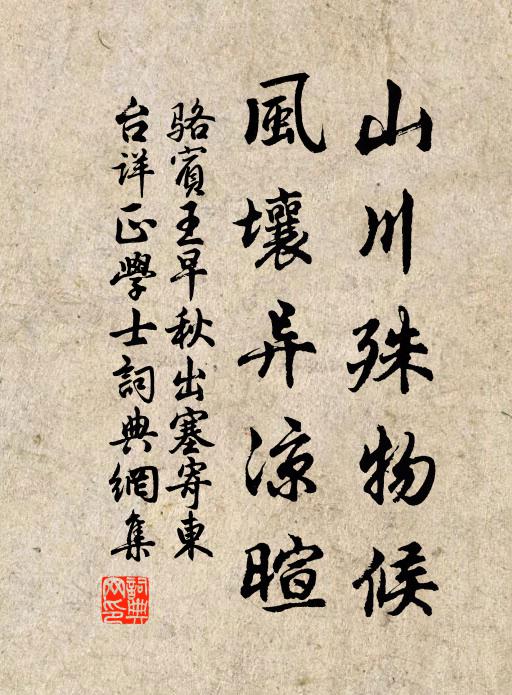 山川殊物候
風壤异涼暄
骆賓王早秋出塞寄東
台详正學士詞典網集
詞典网印